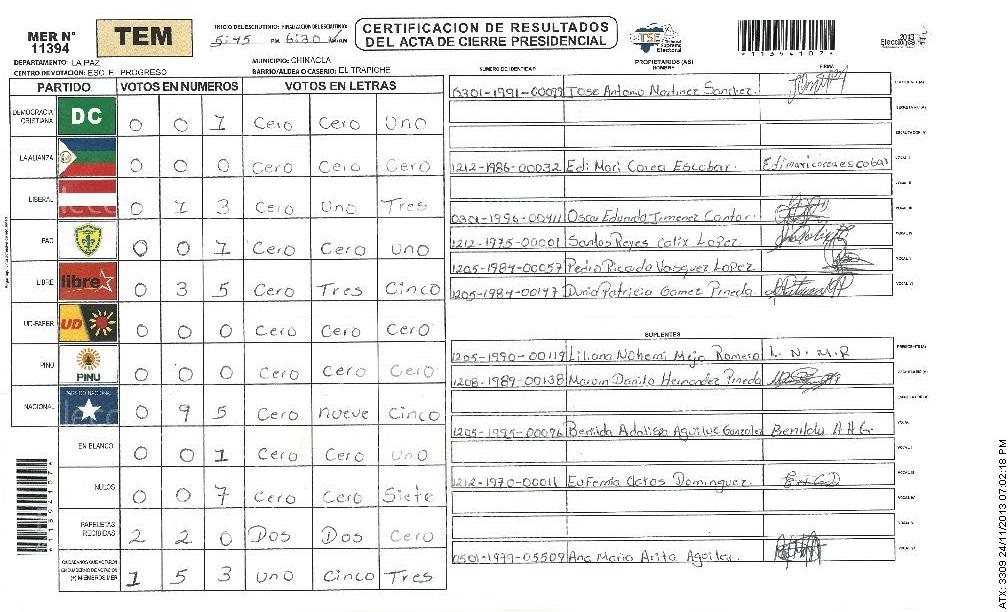 MER N° 11394
TEM
INICIO DEL ESCRUTINIO: FINALIZACION DEL ESCRUTINIO:
5:45 PM 6:30
CERTIFICACION DE RESULTADOS
DEL ACTA DE CIERRE PRESIDENCIAL
TSE Tribunal Supremo Electoral
Elecciones 2013
DEPARTAMENTO: LA PAZ
MUNICIPIO: CHINACLA
CENTRO DE VOTACION: ESC. F. PROGRESO
BARRIO/ALDEA O CASERIO: EL TRAPICHE
PROPIETARIOS (AS)
NUMERO DE IDENTIDAD NOMBRE FIRMA
PARTIDO VOTOS EN NUMEROS VOTOS EN LETRAS
DEMOCRACIA CRISTIANA DC 0 0 1 Cero Cero Uno
LA ALIANZA 0 0 0 Cero Cero Cero
LIBERAL 0 1 3 Cero Uno Tres
PAC 0 0 1 Cero Cero Uno
LIBRE libre 0 3 5 Cero Tres Cinco
UD-FAPER UD 0 0 0 Cero Cero Cero
PINU PINU 0 0 0 Cero Cero Cero
NACIONAL PARTIDO NACIONAL 0 9 5 Cero nueve Cinco
EN BLANCO 0 0 1 Cero Cero Uno
NULOS 0 0 7 Cero Cero Siete
PAPELETAS RECIBIDAS 2 2 0 Dos Dos Cero
CIUDADANOS QUE VOTARON EN CUADERNO DE VOTACION (+) MIEMBROS MER 1 5 3 uno Cinco Tres
0301-1991-00099 Jose Antonio Martinez Sanchez.
1212-1986-00032 Edi Mari Corea Escobar. Edimaricoreaescobar
0301-1996-00911 Oscar Eduardo Jimenez Cantor.
1212-1975-00001 Santos Reyes Calix Lopez.
1205-1984-00057 Pedro Ricardo Vasquez Lopez
1205-1984-00147 Dunia Patricia Gomez Pineda
SUPLENTES
1205-1990-00119 Liliana Nohemi Mejia Romero L. N. M. R
1208-1989-00138 Marvin Danilo Hernandez Pineda
1205-1995-00096 Benilda Adaliza Aguiluz Gonzalez Benilda A A G.
1212-1970-00011 Eufemia Claros Dominguez.
0501-1979-05509 Ana Maria Arita Aguilar.
ATX: 3309 24/11/2013 07:02:18 PM